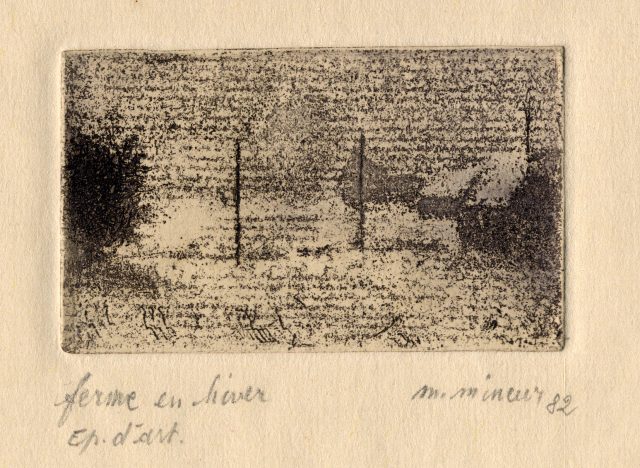 ferme en hiver
m. mineur 82
Ep. d'art.